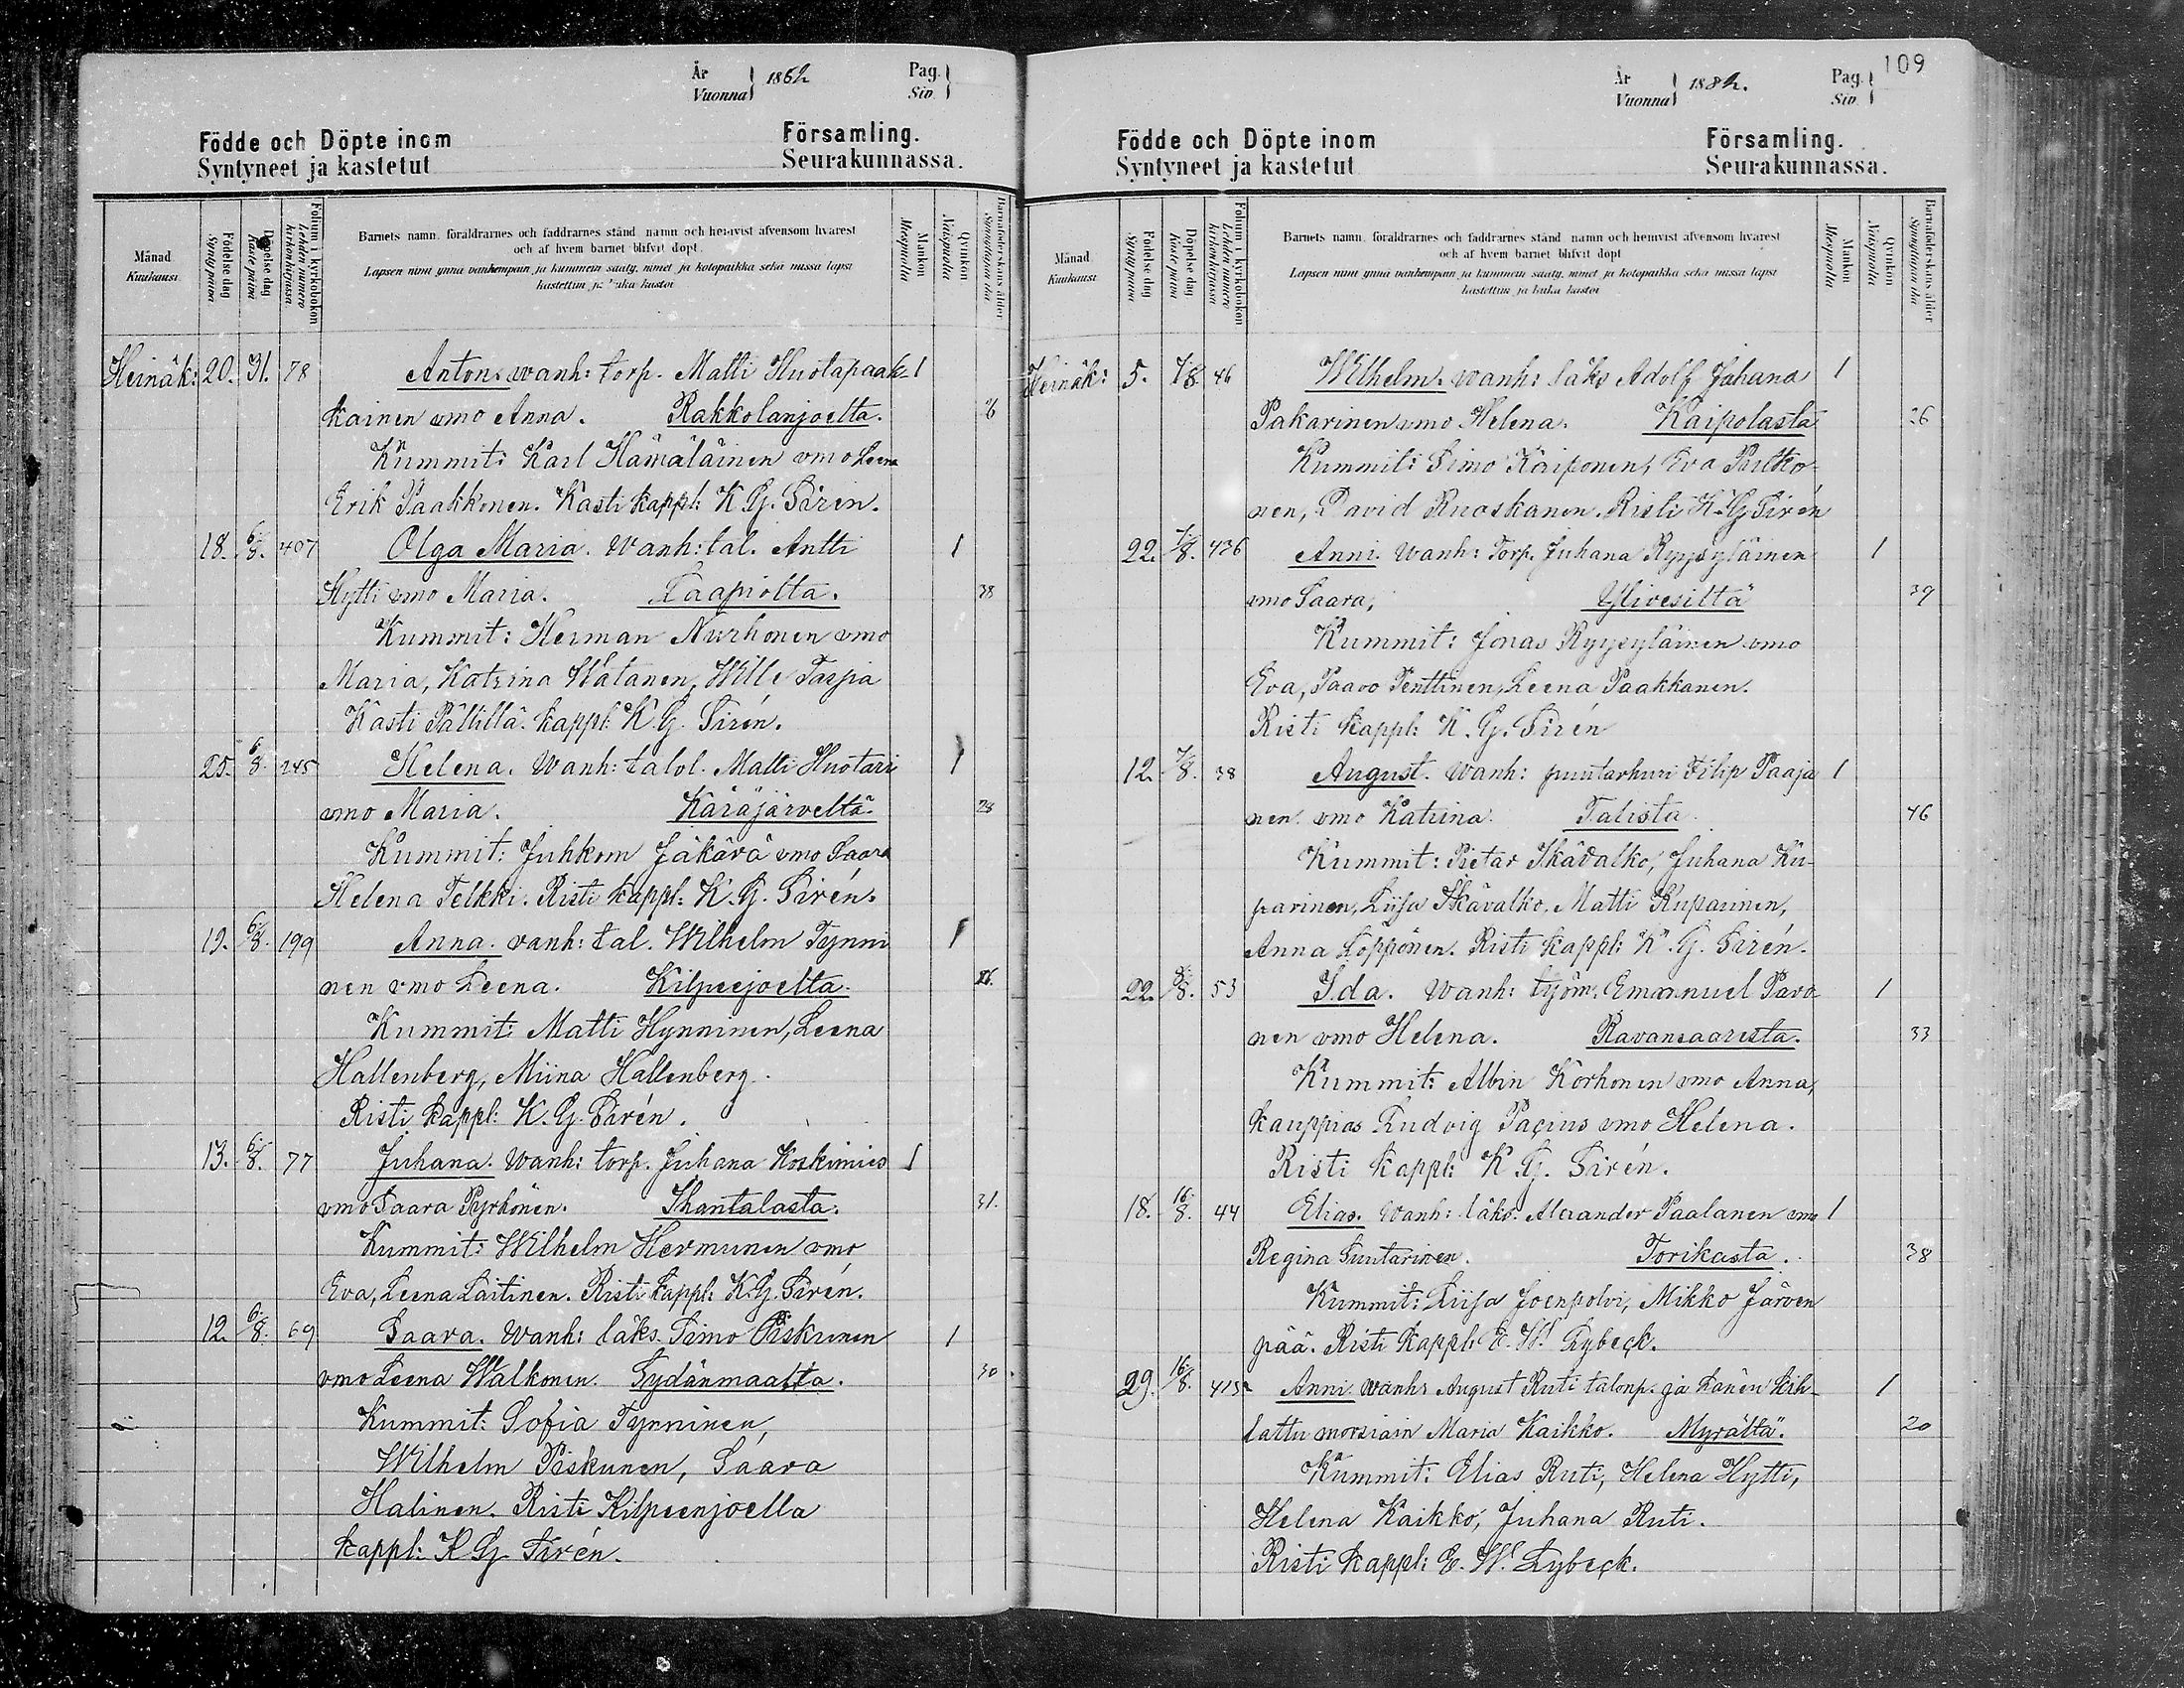 År
Vuonna
1882
Pag.
Siv.
Födde och Döpte inom
Församling.
Syntyneet ja kastetut
Seurakunnassa.
Månad
Kuukausi
Födelse dag
Synty päivä
Döpelse dag
Kaste päivä
Folium i kyrkoboken
Lehden numero kirkon kirjassa
Barnets namn, föräldrarnes och faddrarnes stånd, namn och hemvist äfvensom hvarest
och af hvem barnet blifvit döpt.
Lapsen nimi ynnä vanhempain ja kummein sääty, nimet ja kotopaikka sekä missä lapsi
kastettiin ja kuka kastoi
Mankön
Miespuolta
Qvinkön
Naispuolta
Barnaföderskans ålder
Synnyttäjän ikä
Heinäk: 20. 31. 78 Anton. wanh: torp. Matti Huotapaak- 1
kainen vmo Anna. Rakkolanjoelta.
Kummit: Karl Hämäläinen vmo Leena
Erik Paakkonen. Kasti kappl: K. G. Sirén.
18. 6/8. 407 Olga Maria. Wanh: tal. Antti 1
Hytti vmo Maria. Taapiolta. 38
Kummit: Herman Nurhonen vmo
Maria, Katrina Watanen, Wille Tarpia
Kasti Pällillä. kappl: K. G. Sirén.
25. 6/8. 245 Helena. Wanh: talol. Matti Huotari 1
vmo Maria. Käräjärveltä. 28
Kummit: Juhkom Jäkärä vmo Saara
Helena Telkki. Risti kappl: K. G. Sirén.
19. 6/8. 199 Anna. vanh: tal. Wilhelm Tynni 1
nen vmo Leena. Kilpeejoelta. 26.
Kummit: Matti Hynninen, Leena
Hallenberg, Miina Hallenberg.
Risti kappl: K. G. Sirén.
13. 6/8. 77 Juhana. Wanh: torp. Juhana Koskimies 1
vmo Saara Pyrhönen. Ihantalasta. 31.
Kummit: Wilhelm Hermunen vmo
Eva, Leena Laitinen. Risti kappl: K. G. Sirén.
12. 6/8. 69 Saara. Wanh: läks. Simo Piskunen 1
vmo Leena Walkonen. Sydänmaalta. 30
Kummit: Sofia Tynninen,
Wilhelm Piskunen, Saara
Halinen. Risti Kilpeenjoella
kappl: K G Sirén.
109
År
Vuonna
1882.
Pag.
Siv.
Födde och Döpte inom
Församling.
Syntyneet ja kastetut
Seurakunnassa.
Månad
Kuukausi
Födelse dag
Synty päivä
Döpelse dag
Kaste päivä
Folium i kyrkoboken
Lehden numero kirkon kirjassa
Barnets namn, föräldrarnes och faddrarnes stånd, namn och hemvist äfvensom hvarest
och af hvem barnet blifvit döpt
Lapsen nimi ynnä vanhempain ja kummein sääty, nimet ja kotopaikka sekä missä lapsi
kastettiin ja kuka kastoi
Mankön
Miespuolta
Qvinkön
Naispuolta
Barnaföderskans ålder
Synnyttäjän ikä
Heinäk: 5. 7/8. 46 Wilhelm. wanh: läks Adolf Johana 1
Pakarinen vmo Helena. Kaipolasta 26
Kummit: Simo Kaiponen, Eva Pulko-
nen, David Ruoskanen. Risti K. G. Sirén
22. 7/8. 436 Anni. Wanh: Torp. Juhana Ryysyläinen 1
vmo Saara, Ylivesiltä 39
Kummit: Jonas Ryysyläinen vmo
Eva, Paavo Penttinen, Leena Paakkanen.
Risti kappl: K. G. Sirén
12. 7/8. 38 August. Wanh: puutarhuri Filip Paaja 1
nen. vmo Katrina. Talista. 46
Kummit: Pietar Ikävalko, Juhana Ku-
parinen, Liisa Ikävalko, Matti Kuparinen,
Anna Löppönen. Risti kappl: K. G. Sirén.
22. 8/8. 53 Ida. Wanh: työm. Emanuel Pavo- 1
nen vmo Helena. Ravansaaresta. 33
Kummit: Albin Korhonen vmo Anna,
kauppias Ludvig Pacius vmo Helena.
Risti kappl: K G. Sirén.
18. 16/8. 44 Elias. Wanh: läks. Alexander Paalanen vmo 1
Regina Suntarinen. Torikasta. 38
Kummit: Liisa Joenpolvi, Mikko Järven
pää. Risti kappl: E. W. Lybeck.
29. 16/8. 415 Anni wanh: August Ruti talonp. ja hänen kih- 1
lattu morsiain Maria Kaikko. Myrältä. 20
Kummit: Elias Ruti, Helena Hytti,
Helena Kaikko, Juhana Ruti.
Risti kappl: E. W. Lybeck.